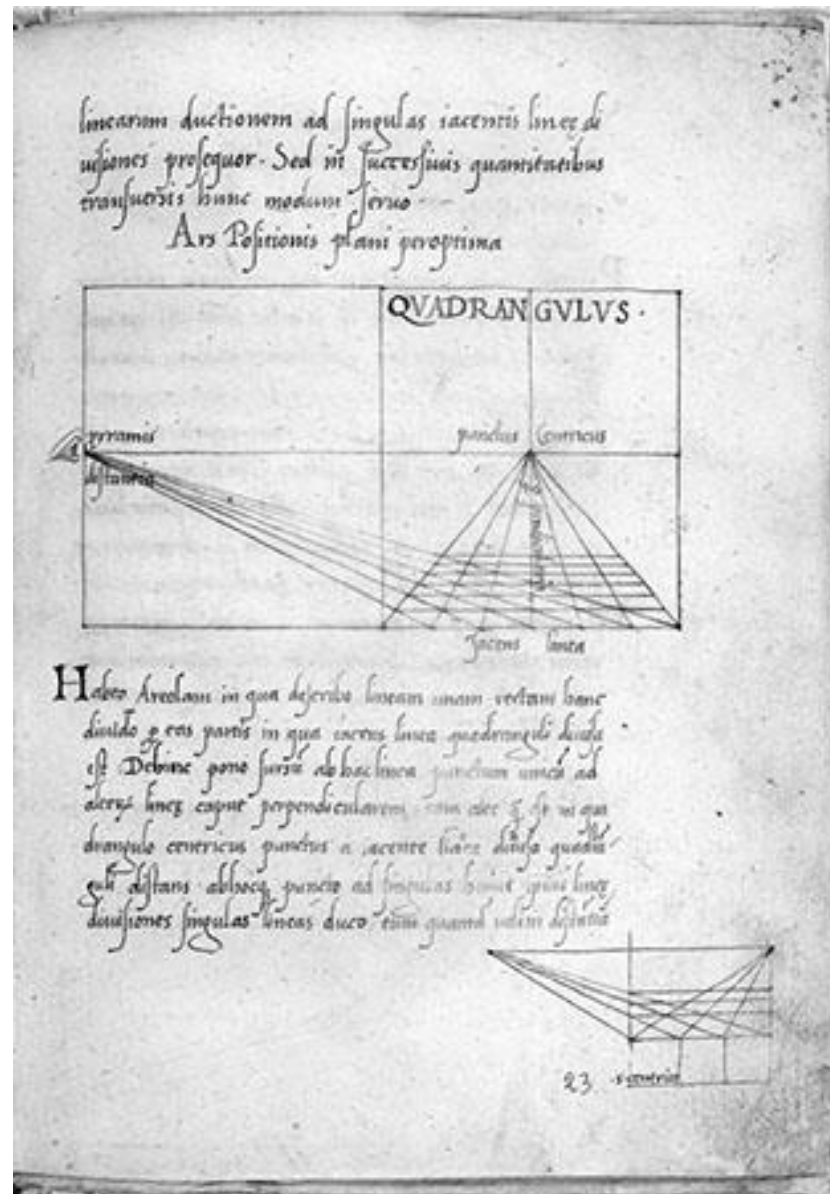 linearum ductionem ad singulas iacentis lineę di
uisiones prosequor. Sed in successiuis quantitatibus
transuersis hunc modum seruo
Ars Positionis plani peroptima
QVADRANGVLVS .
pyramis
punctus Centricus
distantia
Jacens linea
Habeo Areolam in qua describo lineam unam rectam hanc
diuido eas partis in qua iacens linea quadranguli diuisa
est Dehinc pono sursū ab hac linea punctum unicū ad
lineę caput perpendicularem in qua
drangulo centricus punctus a iacente diuisa quadrā
guli distans ab hocq puncto ad singulas lineę
diuisiones singulas lineas duco
23